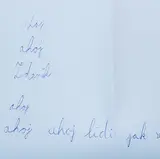 ahoj
Zdeněk
ahoj
ahoj uhoj lidi jak